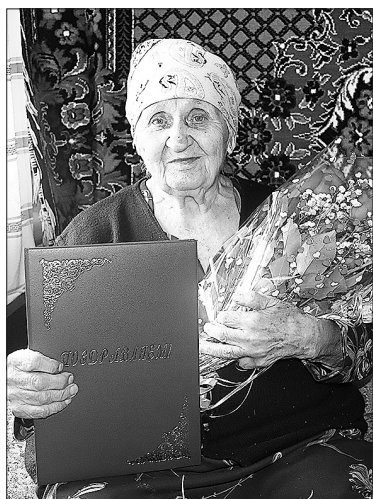 ПОЗДРАВЛЯЕМ